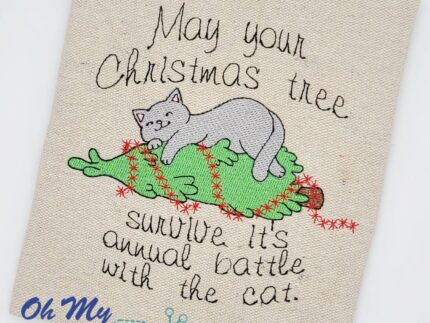 May your
Christmas tree
survive it's
annual battle
with the cat.
Oh My